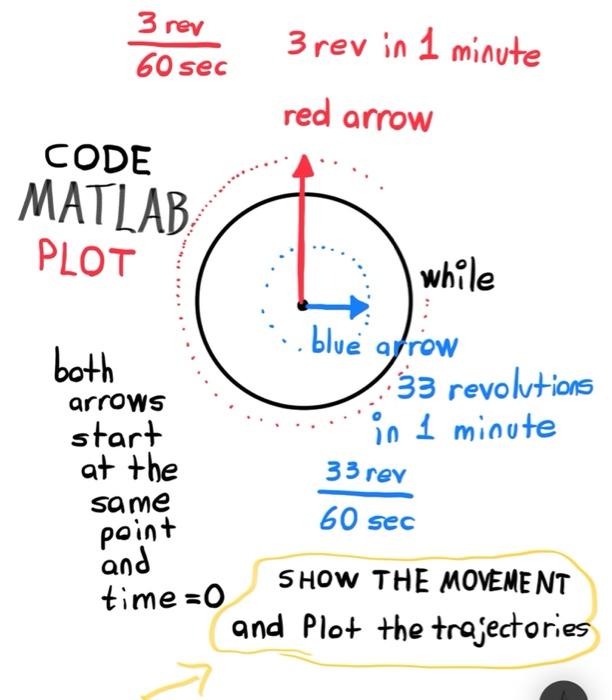 3 rev
60 sec
3 rev in 1 minute
red arrow
CODE
MATLAB
PLOT
while
blue arrow
33 revolutions
in 1 minute
33 rev
60 sec
both
arrows
start
at the
same
point
and
time = 0
SHOW THE MOVEMENT
and Plot the trajectories